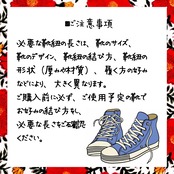 ■ご注意事項
必要な靴紐の長さは、靴のサイズ、
靴のデザイン、靴紐の結び方、靴紐の
形状（厚みや材質）、履く方の好み
などにより、大きく異なります。
ご購入前に必ず、ご使用予定の靴で
お好みの結び方を試し、
必要な長さをご確認
ください。